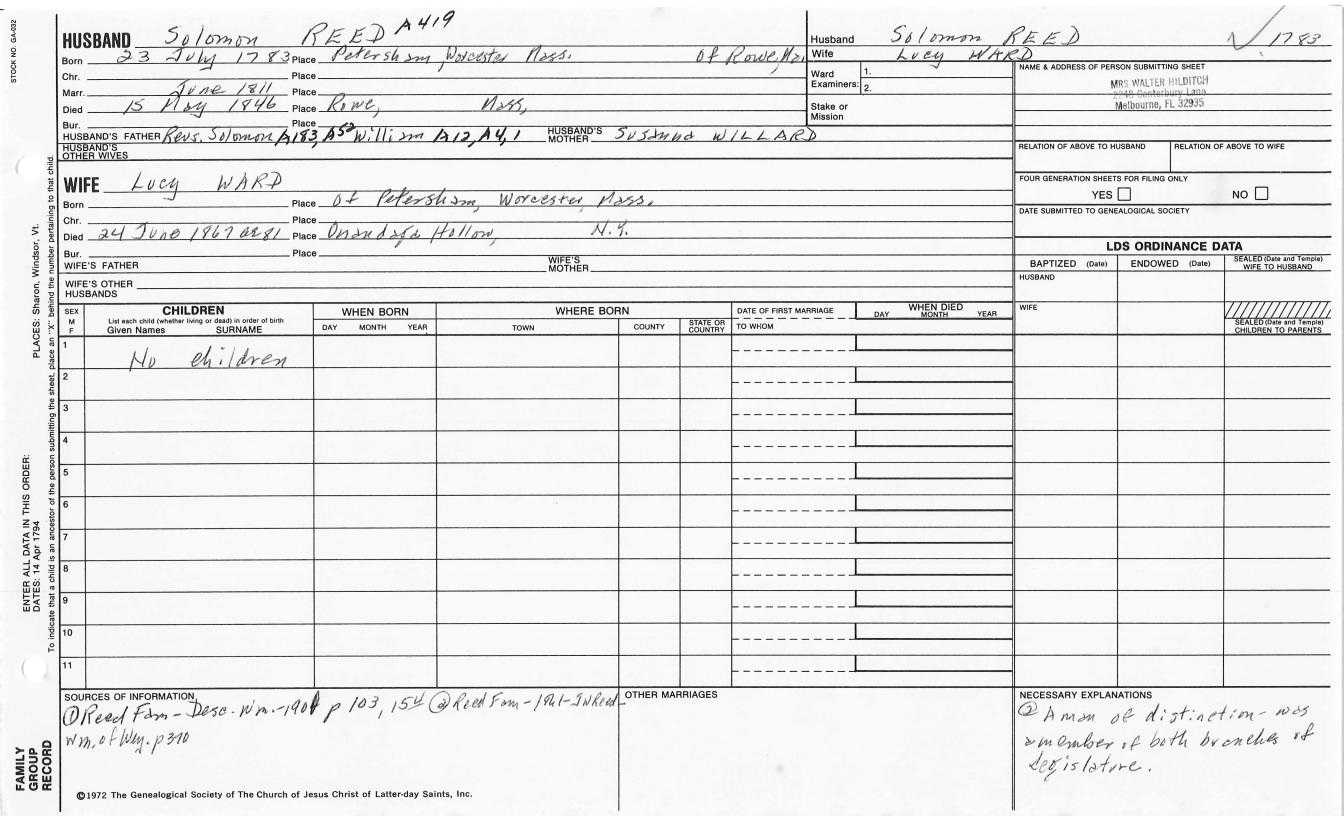 STOCK NO. GA-032
HUSBAND Solomon REED A419
Born 23 July 1783 Place Petersham, Worcester Mass. of Rowe, Ma.
Chr. Place
Marr. June 1811 Place
Died 15 May 1846 Place Rowe, Mass,
Bur. Place
HUSBAND'S FATHER Revs. Solomon A183, A52 William A12, A4, 1 HUSBAND'S MOTHER Susanna WILLARD
HUSBAND'S OTHER WIVES
WIFE Lucy WARD
Born Place Of Petersham, Worcester, Mass.
Chr. Place
Died 24 June 1867 ae 81 Place Onandaga Hollow, N.Y.
Bur. Place
WIFE'S FATHER WIFE'S MOTHER
WIFE'S OTHER HUSBANDS
Husband Solomon REED 1783
Wife Lucy WARD
Ward Examiners: 1.
2.
Stake or Mission
NAME & ADDRESS OF PERSON SUBMITTING SHEET
MRS WALTER HILDITCH
Canterbury Lane
Melbourne, FL 32935
RELATION OF ABOVE TO HUSBAND RELATION OF ABOVE TO WIFE
FOUR GENERATION SHEETS FOR FILING ONLY
YES NO
DATE SUBMITTED TO GENEALOGICAL SOCIETY
LDS ORDINANCE DATA
BAPTIZED (Date) ENDOWED (Date) SEALED (Date and Temple) WIFE TO HUSBAND
HUSBAND
WIFE
SEALED (Date and Temple) CHILDREN TO PARENTS
SEX M F CHILDREN WHEN BORN WHERE BORN DATE OF FIRST MARRIAGE WHEN DIED
List each child (whether living or dead) in order of birth
Given Names SURNAME DAY MONTH YEAR TOWN COUNTY STATE OR COUNTRY TO WHOM DAY MONTH YEAR
1 No children
2
3
4
5
6
7
8
9
10
11
SOURCES OF INFORMATION
① Reed Fam - Desc. Wm. - 1901 p 103, 154 ② Reed Fam - 1861 - JWReed
Wm. of Wey. p 310
OTHER MARRIAGES
NECESSARY EXPLANATIONS
② A man of distinction - was
a member of both branches of
legislature.
©1972 The Genealogical Society of The Church of Jesus Christ of Latter-day Saints, Inc.
FAMILY GROUP RECORD
ENTER ALL DATA IN THIS ORDER:
DATES: 14 Apr 1794
PLACES: Sharon, Windsor, Vt.
To indicate that a child is an ancestor of the person submitting the sheet, place an "X" behind the number pertaining to that child.